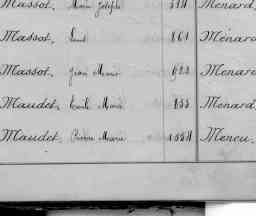 Massot, Marie Joseph Menard,
Massot, Menard
Massot, Jean Marie 923 Menard
Maudet, Emile Marie Menard,
Maudet, Pierre Marie Meneu.